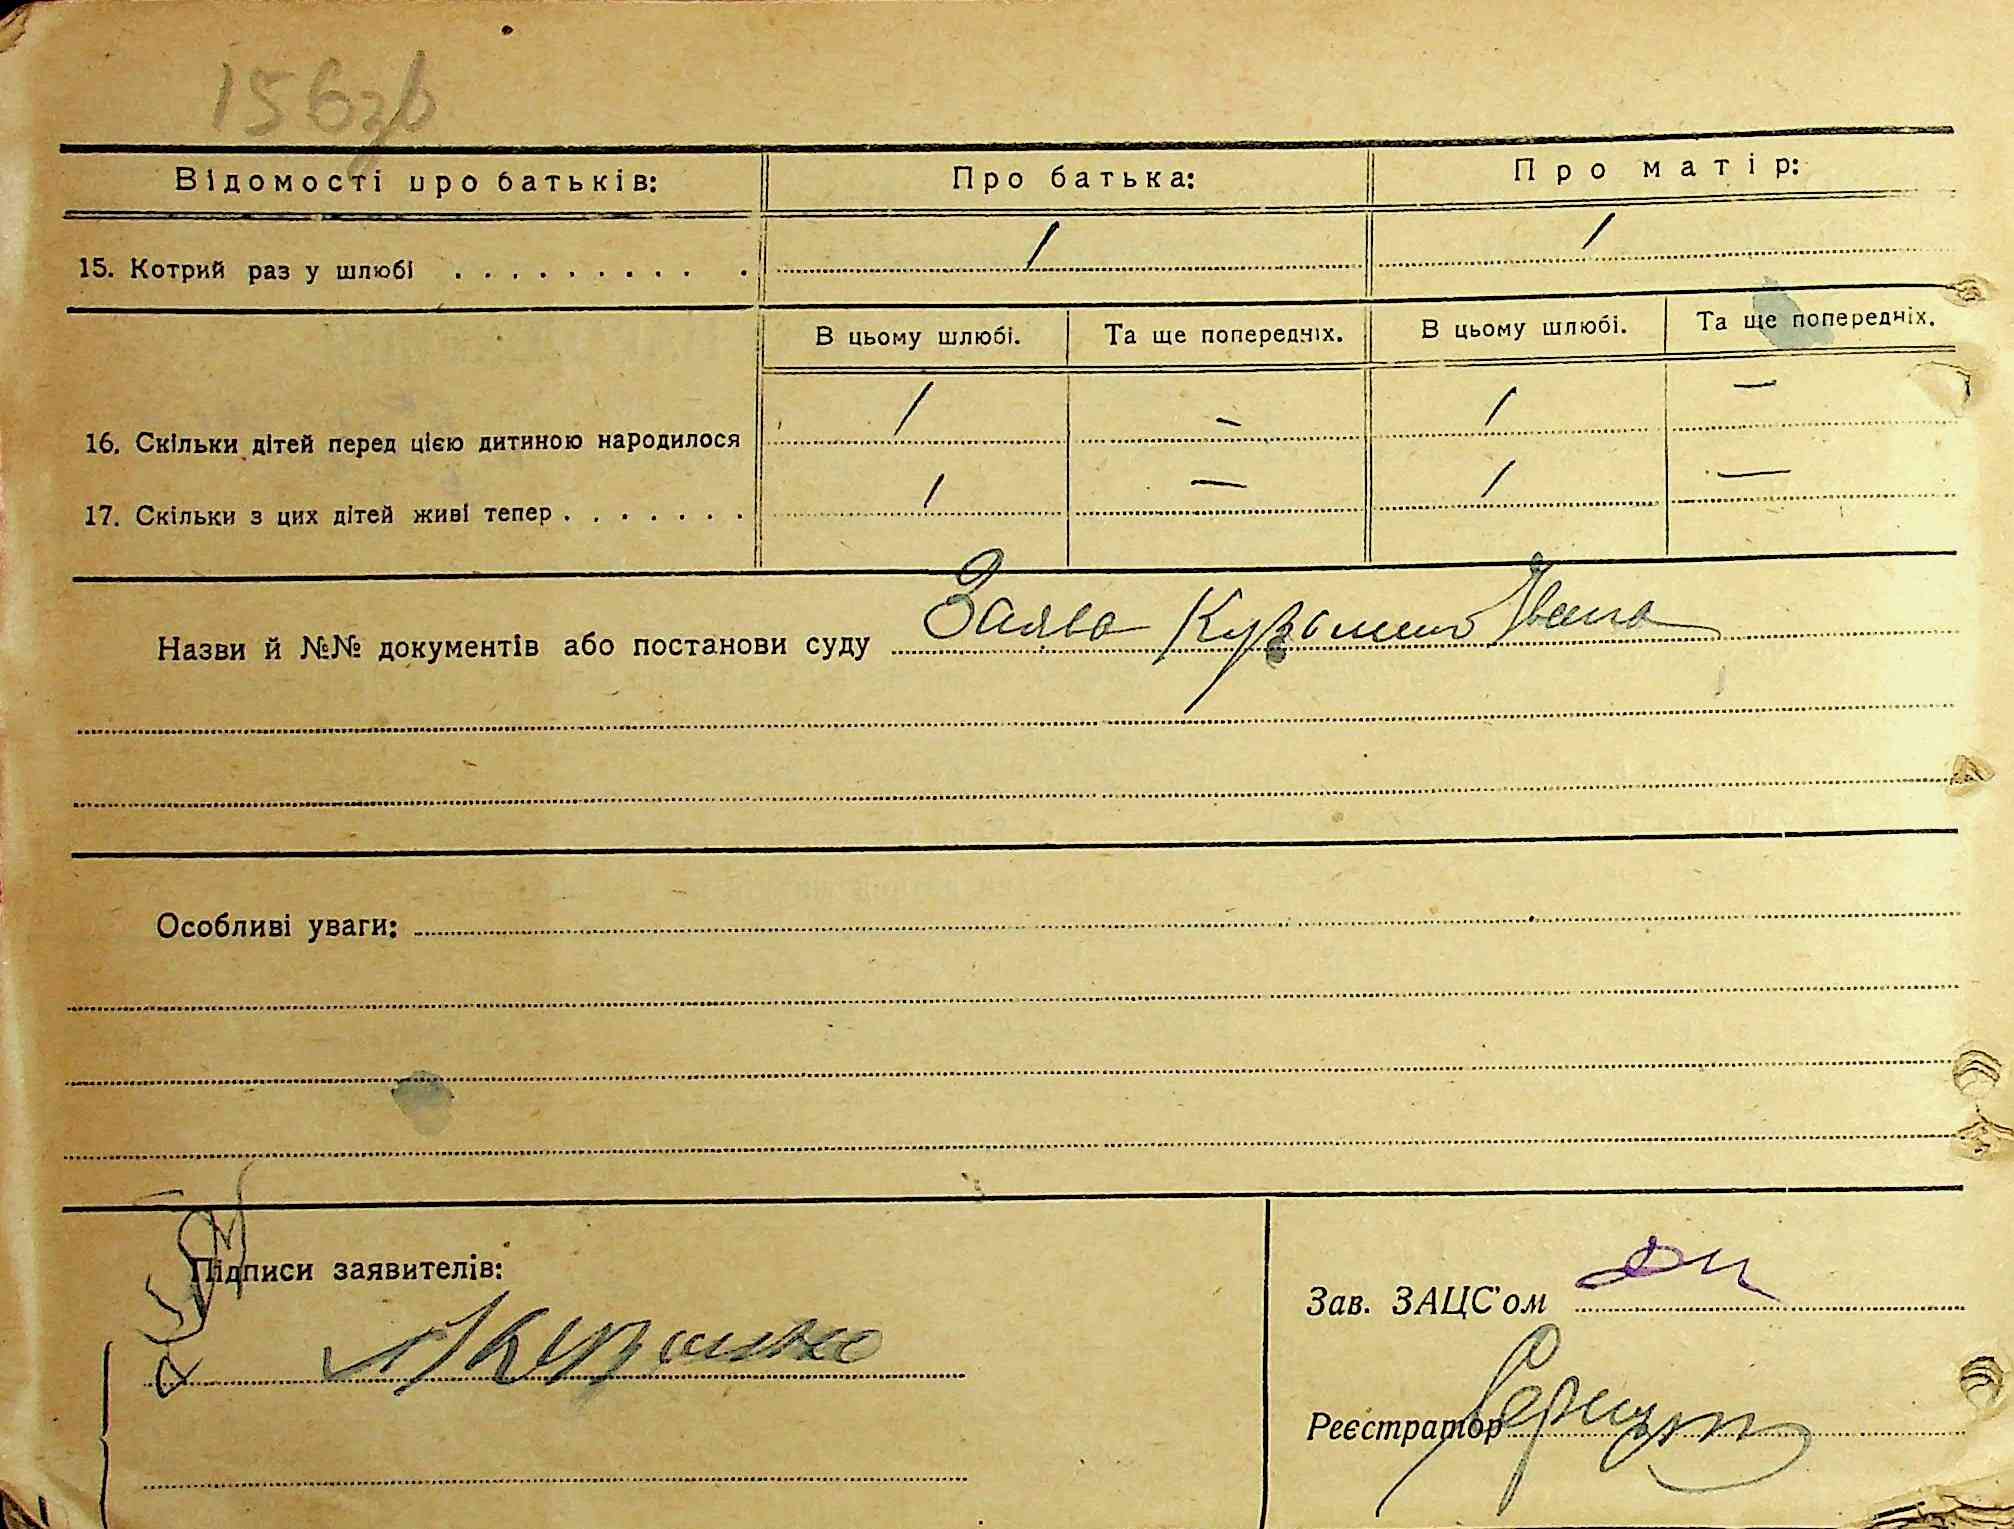 156зв
Відомості про батьків: Про батька: Про матір:
15. Котрий раз у шлюбі . . . . . . . . . . 1 1
В цьому шлюбі. Та ще попередніх. В цьому шлюбі. Та ще попередніх.
16. Скільки дітей перед цією дитиною народилося 1 — 1 —
17. Скільки з цих дітей живі тепер . . . . . . . 1 — 1 —
Назви й №№ документів або постанови суду Заява Кузьменко Івана
Особливі уваги:
Підписи заявителів:
Зав. ЗАЦС'ом
Реєстратор